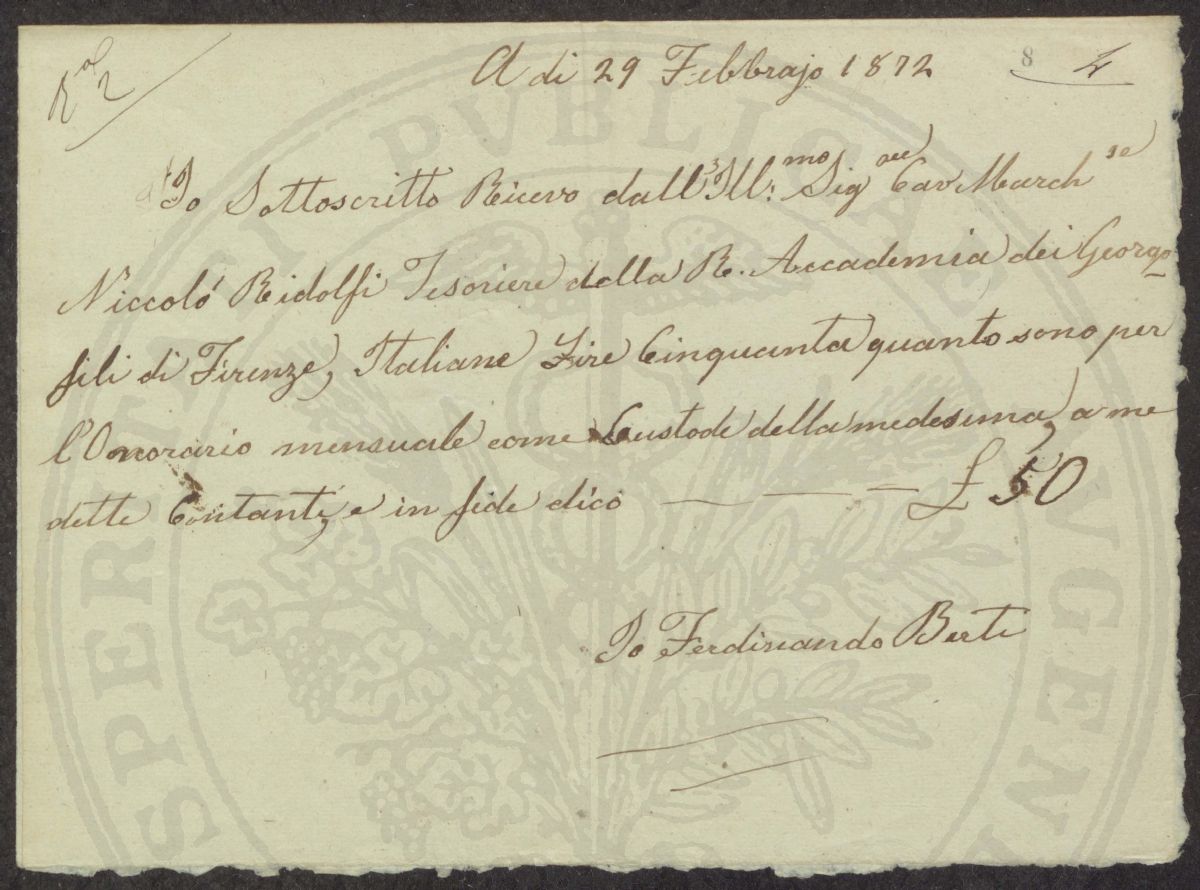 R.al 2
8 4
A di 29 Febbrajo 1872
Io Sottoscritto Ricevo dall'Ill:mo Sigre Cav March.se
Niccolò Ridolfi Tesoriere della R. Accademia dei Georgo
fili di Firenze, Italiane Lire Cinquanta quanto sono per
l'Onorario mensuale come Custode della medesima, a me
dette Contanti, e in fede dico — — — £ 50
Io Ferdinando Berti
PROSPERITATI PVBLICAE AVGENDAE